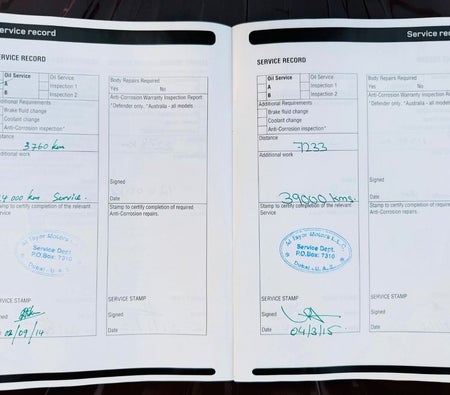 ervice record
SERVICE RECORD
Oil Service
A
B
Oil Service
Inspection 1
Inspection 2
Additional Requirements
Brake fluid change
Coolant change
Anti-Corrosion inspection*
Distance
Additional work
000 km Service.
Stamp to certify completion of the relevant
Service
Service Dept.
P.O.Box: 7310
Dubai - U.A.E
SERVICE STAMP
Signed
Date
02/09/14
Body Repairs Required
Yes No
Anti-Corrosion Warranty Inspection Report
*Defender only, *Australia - all models
Signed
Date
Stamp to certify completion of required
Anti-Corrosion repairs.
SERVICE STAMP
Signed
Date
Service rec
SERVICE RECORD
Oil Service
A
B
Oil Service
Inspection 1
Inspection 2
Additional Requirements
Brake fluid change
Coolant change
Anti-Corrosion inspection*
Distance
7233
Additional work
39000 kms.
Stamp to certify completion of the relevant
Service
Al Tayer Motors L.L.C.
Service Dept.
P.O.Box: 7310
Dubai - U.A.E
SERVICE STAMP
Signed
Date
04/3/15
Body Repairs Required
Yes No
Anti-Corrosion Warranty Inspection
*Defender only, *Australia - all models
Signed
Date
Stamp to certify completion of required
Anti-Corrosion repairs.
SERVICE STAMP
Signed
Date